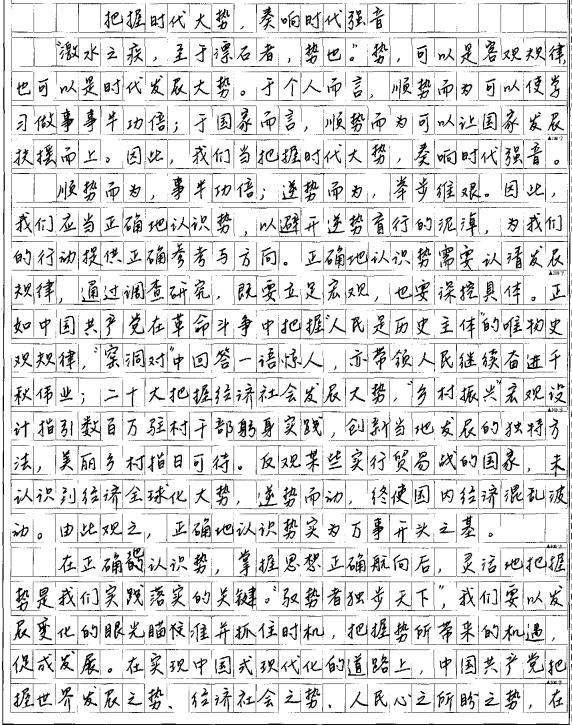 把握时代大势，奏响时代强音
“激水之疾，至于漂石者，势也。”势，可以是客观规律，
也可以是时代发展大势。于个人而言，顺势而为可以使学
习做事事半功倍；于国家而言，顺势而为可以让国家发展
扶摇而上。因此，我们当把握时代大势，奏响时代强音。
顺势而为，事半功倍；逆势而为，举步维艰。因此，
我们应当正确地认识势，以避开逆势育行的泥淖，为我们
的行动提供正确参考与方向。正确地认识势需要认清发展
规律，通过调查研究，既要立足宏观，也要深挖具体。正
如中国共产党在革命斗争中把握“人民是历史主体”的唯物史
观规律，“窑洞对”中回答一语惊人，亦带领人民继续奋进千
秋伟业；二十大把握经济社会发展大势，“乡村振兴”宏观设
计指引数百万驻村干部躬身实践，创新当地发展的独特方
法，美丽乡村指日可待。反观某些实行贸易战的国家，未
认识到经济全球化大势，逆势而动，终使国内经济混乱波
动。由此观之，正确地认识势实为万事开头之基。
在正确认识势，掌握思想正确航向后，灵活地把握
势是我们实践落实的关键。“驭势者独步天下”，我们要以发
展变化的眼光瞄准并抓住时机，把握势所带来的机遇，
促成发展。在实现中国式现代化的道路上，中国共产党把
握世界发展之势、经济社会之势、人民心之所盼之势，在